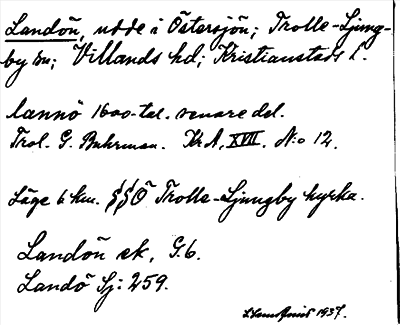 Landön, udde i Östersjön; Trolle-Ljung-
by sn; Villands hd; Kristianstads l.
lannö 1600-tal. senare del.
Trol. G. Buhrman. Kr A, XVII. N:o 12.
Läge 6 km. SSÖ Trolle-Ljungby kyrka.
Landön ek, G.6.
Landö Sj: 259.
1937.